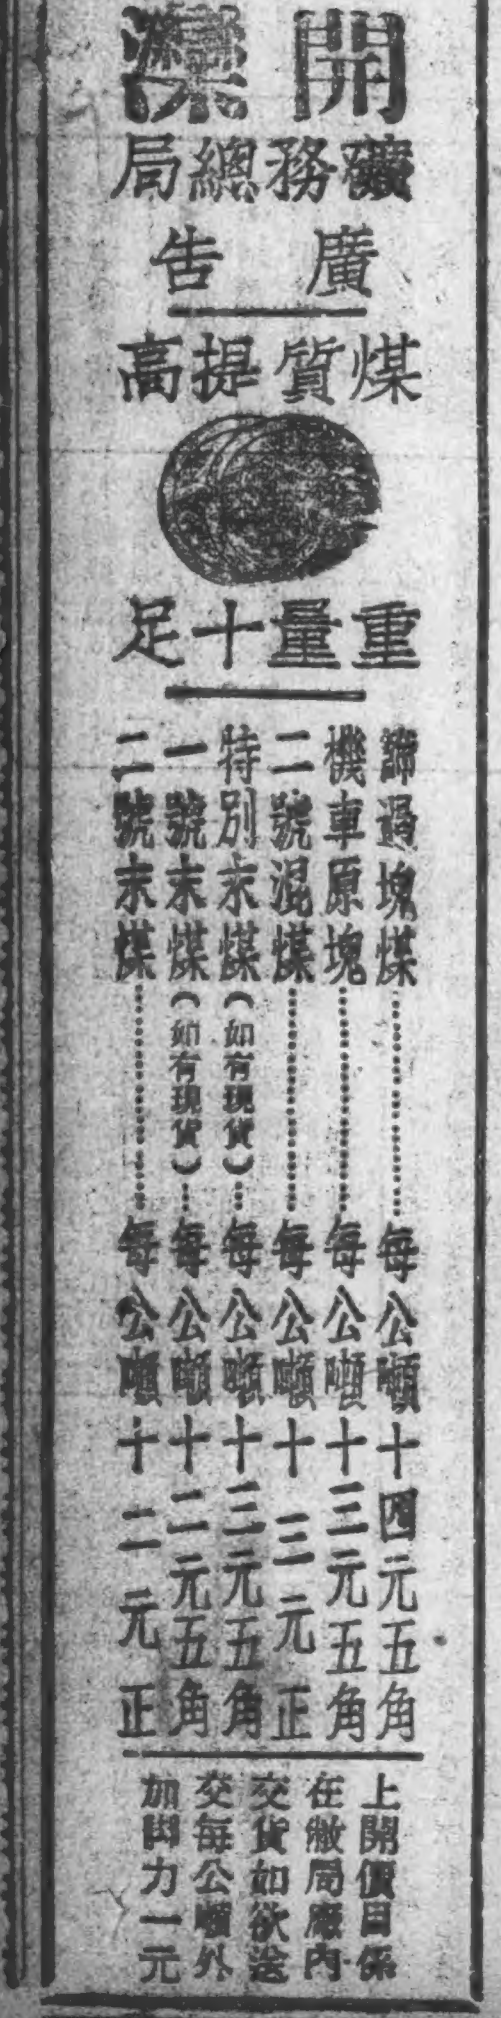 開灤
礦務總局
廣告
煤質提高
重量十足
篩過塊煤………每公噸十四元五角
機車原塊………每公噸十三元五角
二號混煤………每公噸十三元正
特別末煤（如有現貨）…每公噸十三元五角
一號末煤（如有現貨）…每公噸十二元五角
二號末煤………每公噸十二元正
上開價目係
在敝局廠內
交貨如欲送
交每公噸外
加脚力一元